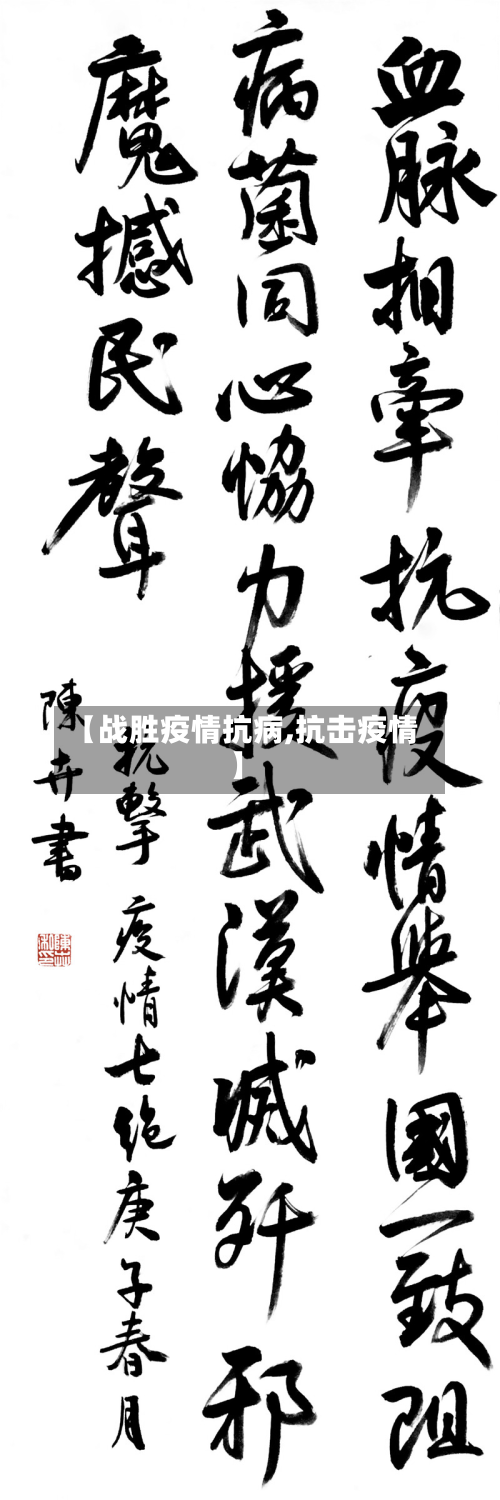 血脉相牽抗疫情舉國一致阻
病菌同心恊力援武漢
歼邪
魔撼民聲
抗擊疫情七绝庚子春月
陳卉書
【战胜疫情抗病,抗击疫情
】